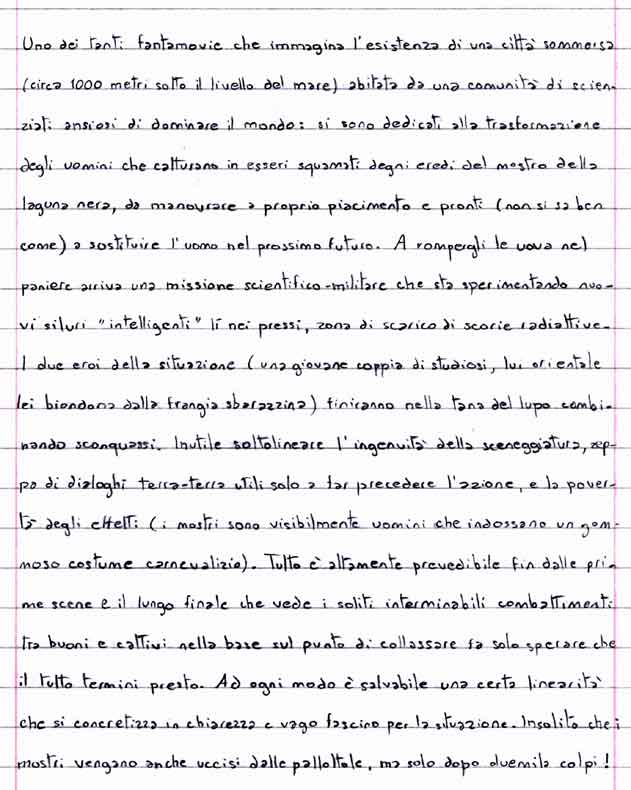 Uno dei tanti fantamovie che immagina l'esistenza di una città sommersa
(circa 1000 metri sotto il livello del mare) abitata da una comunità di scien-
ziati ansiosi di dominare il mondo: si sono dedicati alla trasformazione
degli uomini che catturano in esseri squamati degni eredi del mostro della
laguna nera, da manovrare a proprio piacimento e pronti (non si sa ben
come) a sostituire l'uomo nel prossimo futuro. A rompergli le uova nel
paniere arriva una missione scientifico-militare che sta sperimentando nuo-
vi siluri "intelligenti" lì nei pressi, zona di scarico di scorie radiattive.
I due eroi della situazione (una giovane coppia di studiosi, lui orientale
lei biondona dalla frangia sbarazzina) finiranno nella tana del lupo combi-
nando sconquassi. Inutile sottolineare l'ingenuità della sceneggiatura, zep-
pa di dialoghi terra-terra utili solo a far precedere l'azione, e la pover-
tà degli effetti (i mostri sono visibilmente uomini che indossano un gom-
moso costume carnevalizio). Tutto è altamente prevedibile fin dalle pri-
me scene e il lungo finale che vede i soliti interminabili combattimenti
tra buoni e cattivi nella base sul punto di collassare fa solo sperare che
il tutto termini presto. Ad ogni modo è salvabile una certa linearità
che si concretizza in chiarezza e vago fascino per la situazione. Insolito che i
mostri vengano anche uccisi dalle pallottole, ma solo dopo duemila colpi!